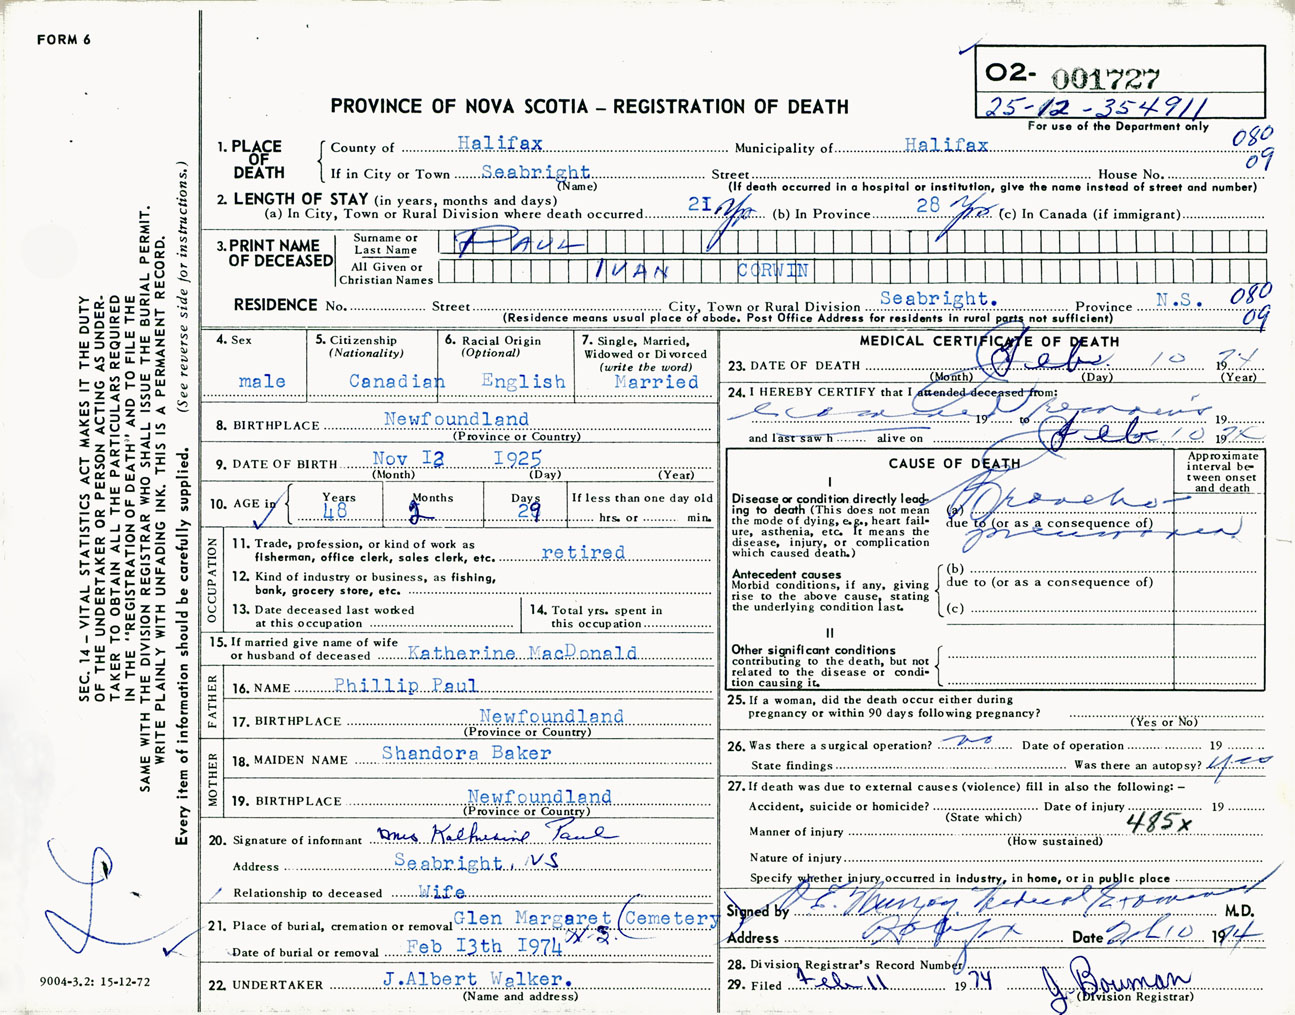 FORM 6
O2- 001727
25-12-354911
For use of the Department only
PROVINCE OF NOVA SCOTIA – REGISTRATION OF DEATH
080
09
1. PLACE OF DEATH
County of Halifax Municipality of Halifax
If in City or Town Seabright Street House No.
(Name) (If death occurred in a hospital or institution, give the name instead of street and number)
2. LENGTH OF STAY (in years, months and days)
(a) In City, Town or Rural Division where death occurred 21 Yrs (b) In Province 28 Yrs (c) In Canada (if immigrant)
3. PRINT NAME OF DECEASED
Surname or Last Name PAUL
All Given or Christian Names IVAN CORWIN
RESIDENCE No. Street City, Town or Rural Division Seabright. Province N.S. 080
(Residence means usual place of abode. Post Office Address for residents in rural parts not sufficient) 09
4. Sex
male
5. Citizenship
(Nationality)
Canadian
6. Racial Origin
(Optional)
English
7. Single, Married,
Widowed or Divorced
(write the word)
Married
8. BIRTHPLACE Newfoundland
(Province or Country)
9. DATE OF BIRTH Nov 12 1925
(Month) (Day) (Year)
10. AGE in
Years Months Days If less than one day old
48 2 29 hrs. or min.
OCCUPATION
11. Trade, profession, or kind of work as
fisherman, office clerk, sales clerk, etc. retired
12. Kind of industry or business, as fishing,
bank, grocery store, etc.
13. Date deceased last worked
at this occupation
14. Total yrs. spent in
this occupation
15. If married give name of wife
or husband of deceased Katherine MacDonald
FATHER
16. NAME Phillip Paul
17. BIRTHPLACE Newfoundland
(Province or Country)
MOTHER
18. MAIDEN NAME Shandora Baker
19. BIRTHPLACE Newfoundland
(Province or Country)
20. Signature of informant Mrs Katherine Paul
Address Seabright, NS
Relationship to deceased Wife
21. Place of burial, cremation or removal Glen Margaret (Cemetery
N.S.
Date of burial or removal Feb 13th 1974
22. UNDERTAKER J.Albert Walker.
(Name and address)
MEDICAL CERTIFICATE OF DEATH
23. DATE OF DEATH Feb. 10 1974
(Month) (Day) (Year)
24. I HEREBY CERTIFY that I attended deceased from:
examined remains 19 to 19
and last saw h alive on Feb 10 1974
CAUSE OF DEATH
Approximate
interval be-
tween onset
and death
I
Disease or condition directly lead-
ing to death (This does not mean
the mode of dying, e.g., heart fail-
ure, asthenia, etc. It means the
disease, injury, or complication
which caused death.)
(a) Broncho-
due to (or as a consequence of)
pneumonia
Antecedent causes
Morbid conditions, if any, giving
rise to the above cause, stating
the underlying condition last.
(b)
due to (or as a consequence of)
(c)
II
Other significant conditions
contributing to the death, but not
related to the disease or condi-
tion causing it.
25. If a woman, did the death occur either during
pregnancy or within 90 days following pregnancy?
(Yes or No)
26. Was there a surgical operation? no Date of operation 19
State findings Was there an autopsy? yes
27. If death was due to external causes (violence) fill in also the following: –
Accident, suicide or homicide? Date of injury 19
(State which)
485x
Manner of injury
(How sustained)
Nature of injury
Specify whether injury occurred in industry, in home, or in public place
Signed by D.E. Murray, Medical Examiner M.D.
Address Halifax Date Feb 10 1974
28. Division Registrar's Record Number
29. Filed Feb 11 1974 J. Bouman
(Division Registrar)
SEC. 14 – VITAL STATISTICS ACT MAKES IT THE DUTY
OF THE UNDERTAKER OR PERSON ACTING AS UNDER-
TAKER TO OBTAIN ALL THE PARTICULARS REQUIRED
IN THE "REGISTRATION OF DEATH" AND TO FILE THE
SAME WITH THE DIVISION REGISTRAR WHO SHALL ISSUE THE BURIAL PERMIT.
WRITE PLAINLY WITH UNFADING INK. THIS IS A PERMANENT RECORD.
Every item of information should be carefully supplied. (See reverse side for instructions.)
9004-3.2: 15-12-72